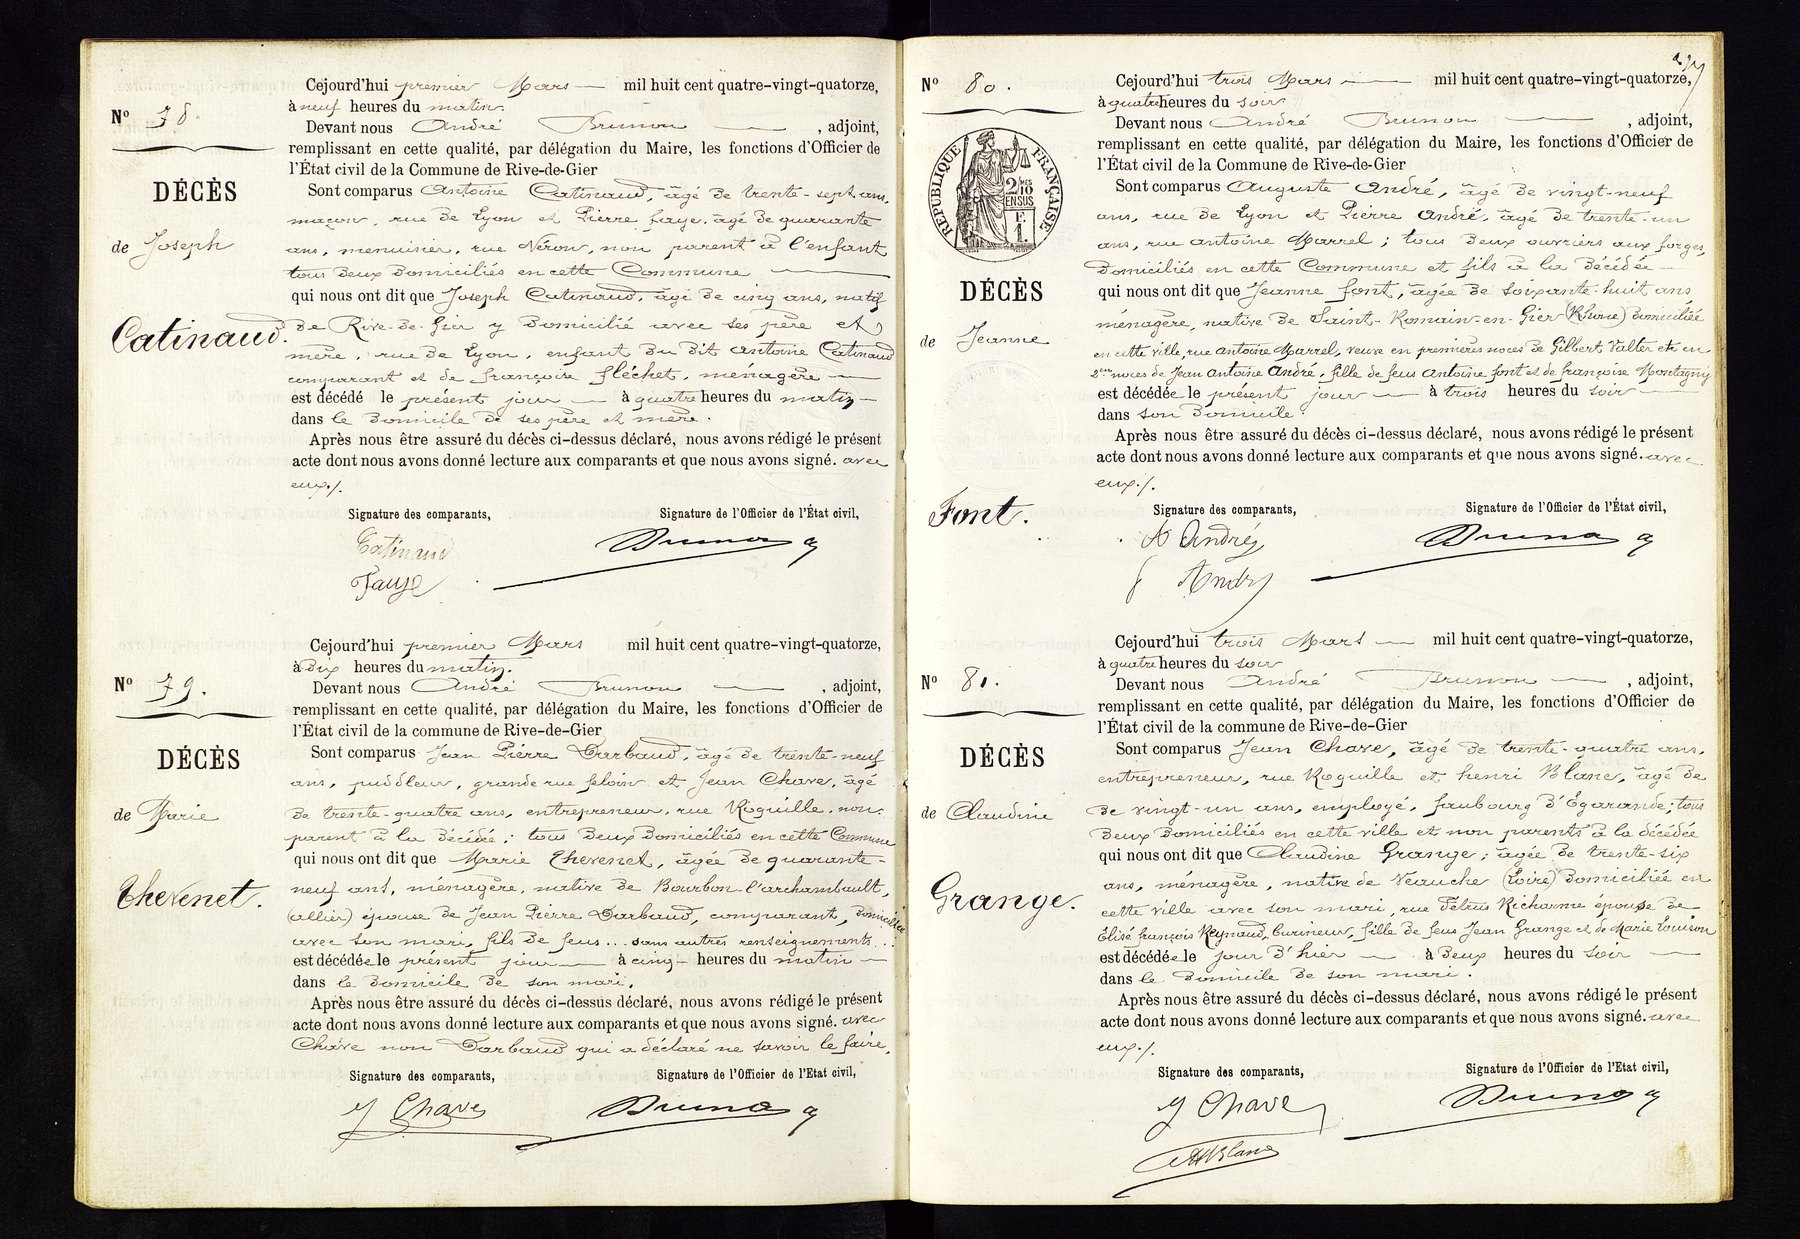 Cejourd'hui premier Mars — mil huit cent quatre-vingt-quatorze,
à neuf heures du matin.
Nº 78.
Devant nous André Brunon — , adjoint,
remplissant en cette qualité, par délégation du Maire, les fonctions d'Officier de
l'État civil de la Commune de Rive-de-Gier
DÉCÈS
Sont comparus Antoine Catinaud, âgé de trente-sept ans,
maçon, rue de Lyon et Pierre faye, âgé de quarante
de Joseph
ans, menuisier, rue Néron, non parent à l'enfant
tous deux domiciliés en cette Commune —
qui nous ont dit que Joseph Catinaud, âgé de cinq ans, natif
Catinaud.
de Rive-de-Gier y domicilié avec ses père et
mère, rue de Lyon, enfant du dit Antoine Catinaud
comparant et de françoise fléchet, ménagère —
est décédé le présent jour — à quatre heures du matin —
dans le domicile de ses père et mère.
Après nous être assuré du décès ci-dessus déclaré, nous avons rédigé le présent
acte dont nous avons donné lecture aux comparants et que nous avons signé. avec
eux./.
Signature des comparants, Signature de l'Officier de l'État civil,
Catinaud Brunon
Faye
Cejourd'hui premier Mars mil huit cent quatre-vingt-quatorze,
à dix heures du matin.
Nº 79.
Devant nous André Brunon — , adjoint,
remplissant en cette qualité, par délégation du Maire, les fonctions d'Officier de
l'État civil de la Commune de Rive-de-Gier
DÉCÈS
Sont comparus Jean Pierre Darbaud, âgé de trente-neuf
ans, puddleur, grande rue feloin et Jean Chave, âgé
de Marie
de trente-quatre ans, entrepreneur, rue Roquille, non
parent à la décédé; tous deux domiciliés en cette Commune
qui nous ont dit que Marie Thevenet, âgée de quarante-
Thevenet.
neuf ans, ménagère, native de Bourbon-l'archambault,
(allier) épouse de Jean Pierre Darbaud, comparant, domiciliée
avec son mari, fils de feus... sans autres renseignements...
est décédée le présent jour — à cinq — heures du matin —
dans le domicile de son mari.
Après nous être assuré du décès ci-dessus déclaré, nous avons rédigé le présent
acte dont nous avons donné lecture aux comparants et que nous avons signé. avec
Chave non Darbaud qui a déclaré ne savoir le faire.
Signature des comparants, Signature de l'Officier de l'Etat civil,
J Chave Brunon
Cejourd'hui trois Mars — mil huit cent quatre-vingt-quatorze,
Nº 80.
à quatre heures du soir
Devant nous André Brunon — , adjoint,
remplissant en cette qualité, par délégation du Maire, les fonctions d'Officier de
l'État civil de la Commune de Rive-de-Gier
RÉPUBLIQUE FRANÇAISE
2/10 MES
EN SUS
F.
1.
Sont comparus Auguste André, âgé de vingt-neuf
ans, rue de Lyon et Pierre André, âgé de trente-un
ans, rue antoine Marrel; tous deux ouvriers aux forges,
domiciliés en cette Commune et fils à la décédée —
DÉCÈS
qui nous ont dit que Jeanne font, âgée de soixante-huit ans
ménagère, native de Saint-Romain-en-Gier (Rhône) domiciliée
de Jeanne
en cette ville, rue antoine Marrel, veuve en premières noces de Gilbert Valter et en
2èmes noces de Jean Antoine André, fille de feus Antoine font et de françoise Montagny
est décédée le présent jour — à trois heures du soir —
dans son domicile.
Après nous être assuré du décès ci-dessus déclaré, nous avons rédigé le présent
acte dont nous avons donné lecture aux comparants et que nous avons signé. avec
eux./.
Font.
Signature des comparants, Signature de l'Officier de l'État civil,
A André Brunon
André
Cejourd'hui trois Mars — mil huit cent quatre-vingt-quatorze,
à quatre heures du soir
Nº 81.
Devant nous André Brunon — , adjoint,
remplissant en cette qualité, par délégation du Maire, les fonctions d'Officier de
l'État civil de la commune de Rive-de-Gier
DÉCÈS
Sont comparus Jean Chave, âgé de trente-quatre ans,
entrepreneur, rue Roquille et henri Blanc, âgé de
de Claudine
de vingt-un ans, employé, faubourg d'Égarande; tous
deux domiciliés en cette ville et non parents à la décédée
qui nous ont dit que Claudine Grange; âgée de trente-six
Grange.
ans, ménagère, native de Veauche (Loire) domiciliée en
cette ville avec son mari, rue Pétrus Richarme épouse de
Élisé françois Reynaud, burineur, fille de feu Jean Grange et de Marie Louison
est décédée le jour d'hier — à deux heures du soir —
dans le domicile de son mari.
Après nous être assuré du décès ci-dessus déclaré, nous avons rédigé le présent
acte dont nous avons donné lecture aux comparants et que nous avons signé. avec
eux./.
Signature des comparants, Signature de l'Officier de l'Etat civil,
J Chave Brunon
HBlanc